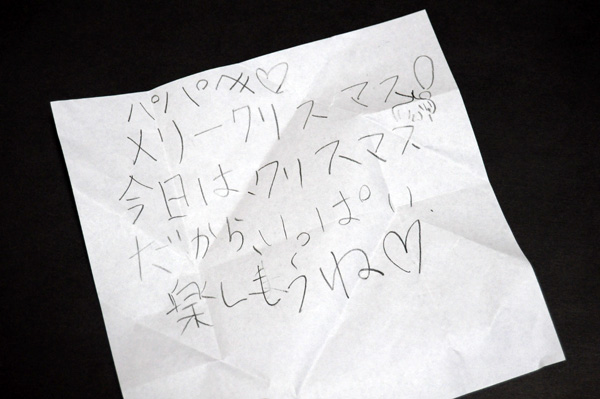 パパへ♡
メリークリスマス
今日は、クリスマス
だから、いっぱい
楽しもうね♡